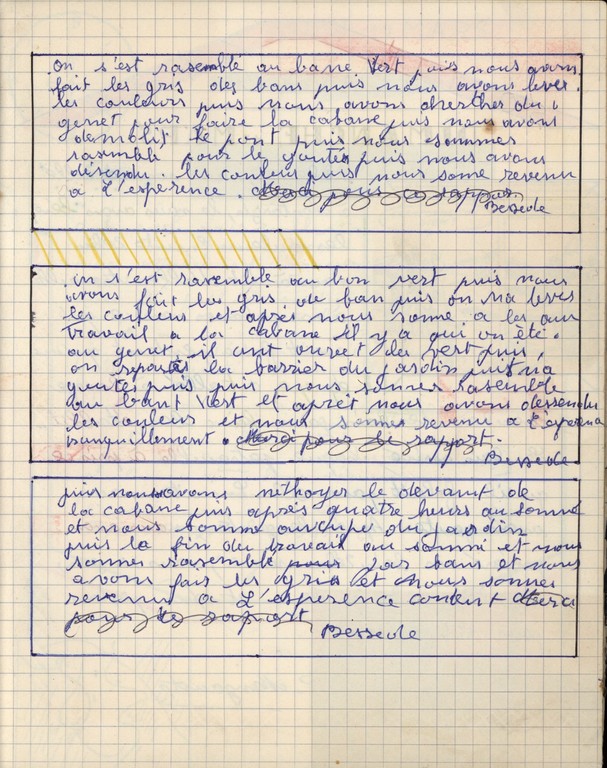 on s'est rasemblé au banc Vert puis nous avons
fait les gris des bans puis nous avons levés.
les couleurs puis nous avons cherches du
genet pour faire la cabane puis nous avons
demblit le pont puis nous sommes
rasemble pour le goutés puis nous avons
désendu. les couleurs puis nous some revenu
a L'esperence. merci pour le rapport
Bessede
on s'est rasemble au bon vert puis nous
avons fait les gris de ban puis on na leves
les couleurs et après nous somme a les au
travail a la cabane il y a qui on été.
au genet. il ont ouvert des vert puis,
on reparés la barrier du jardin puis na
goutés puis puis nous sommes rasemble
au bant Vert et aprêt nous avons dessendu
les couleurs et nous sommes revenu a L'esperena
tranquillement. Merci pour le rapport.
Bessede
puis nous avons néthoyer le devant de
la cabane puis aprés quatre heurs au sommé
et nous somme aucupe du jardin
puis la fin du travail au sommé et nous
sommes rasemble pour bans et nous
avons fais les gris et nous sommes
revenu a L'esperence content Merci
pour le raport
Bessede